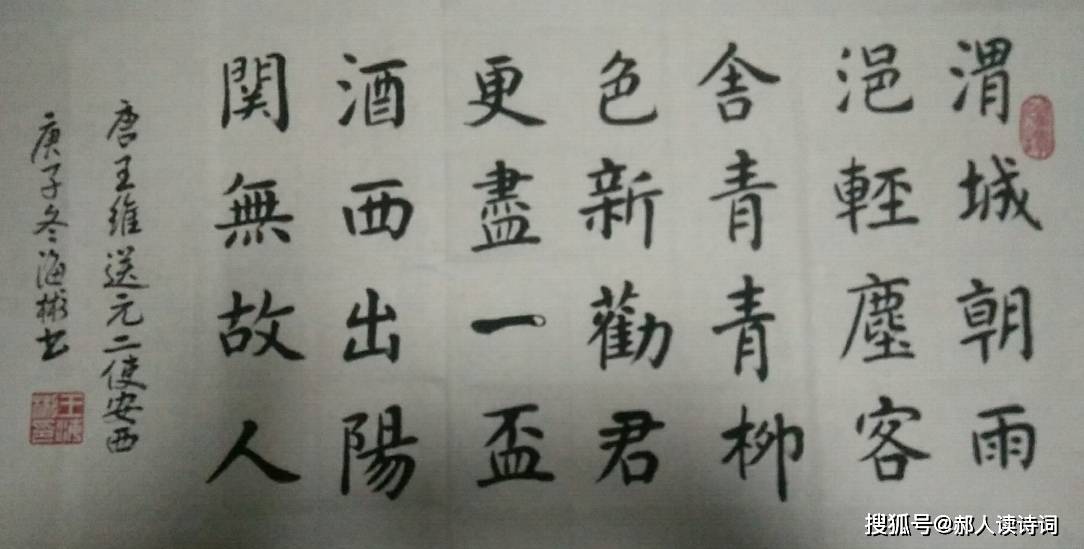 渭城朝雨
浥輕塵客
舍青青柳
色新勸君
更盡一盃
酒西出陽
関無故人
唐王維送元二使安西
庚子冬海彬书
搜狐号@郝人读诗词